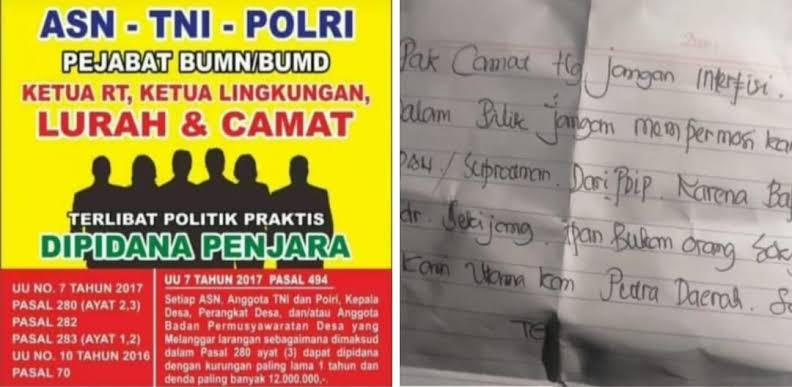 ASN - TNI - POLRI
PEJABAT BUMN/BUMD
KETUA RT, KETUA LINGKUNGAN,
LURAH & CAMAT
TERLIBAT POLITIK PRAKTIS
DIPIDANA PENJARA
UU NO. 7 TAHUN 2017
PASAL 280 (AYAT 2,3)
PASAL 282
PASAL 283 (AYAT 1,2)
UU NO. 10 TAHUN 2016
PASAL 70
UU 7 TAHUN 2017 PASAL 494
Setiap ASN, Anggota TNI dan Polri, Kepala
Desa, Perangkat Desa, dan/atau Anggota
Badan Permusyawaratan Desa yang
Melanggar larangan sebagaimana dimaksud
dalam Pasal 280 ayat (3) dapat dipidana
dengan kurungan paling lama 1 tahun dan
denda paling banyak 12.000.000,-.
Pak Camat jangan interfisi.
alam Pilik jangan mempermosi kan
/ Suprodman. Dari Pdip. Karena Ba
dr. Sekijang. ipan Bukan orang
kami Utama kan Putra Daerah.
TE